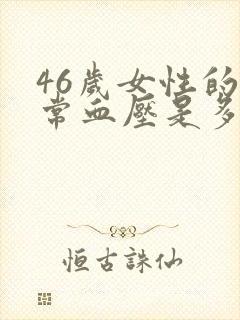 46歲女性的
常血壓是多
恒古誅仙